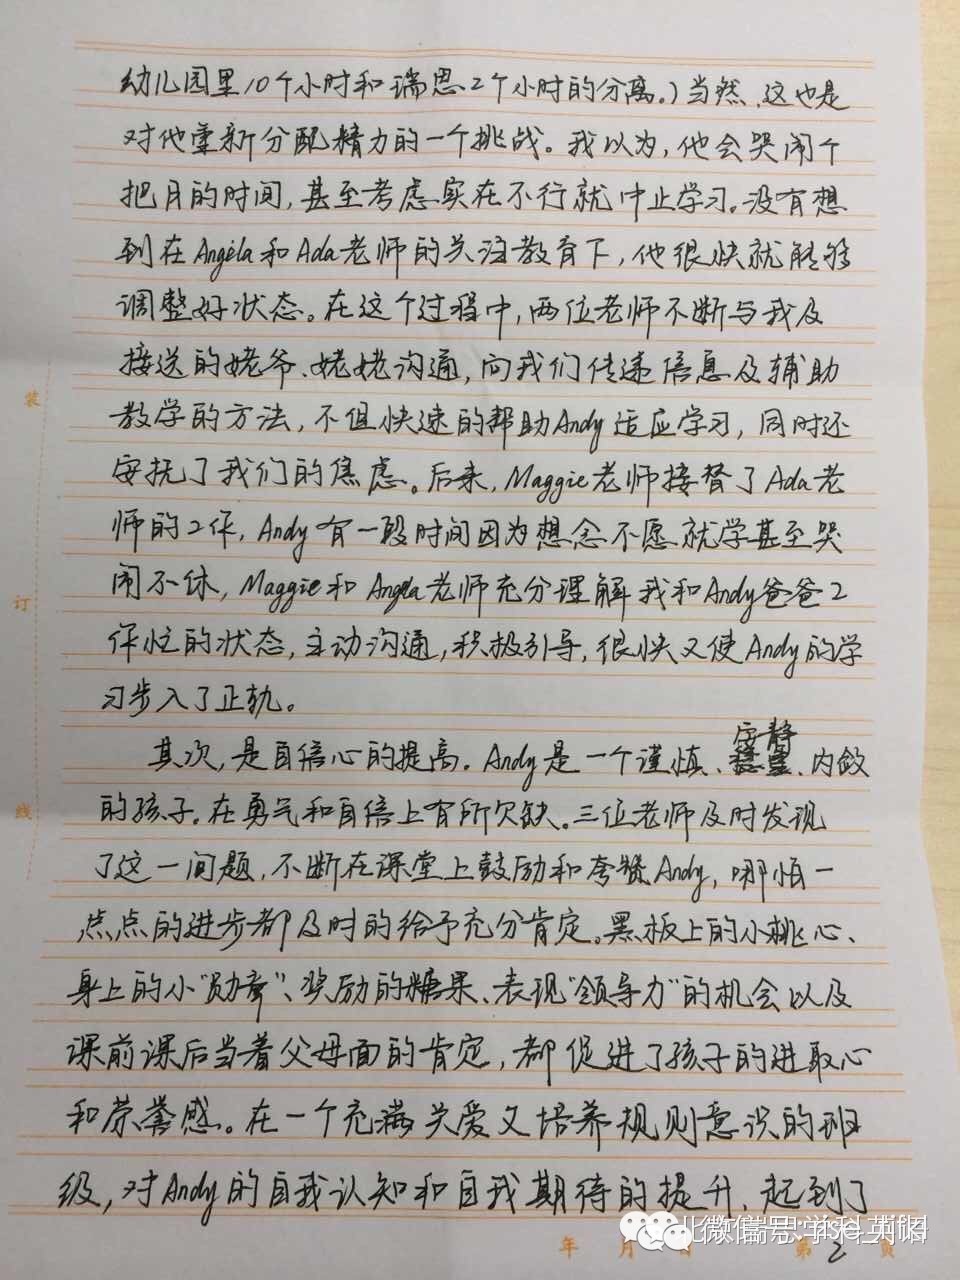 幼儿园里10个小时和瑞思2个小时的分离。）当然，这也是
对他重新分配精力的一个挑战。我以为，他会哭闹个
把月的时间，甚至考虑实在不行就中止学习。没有想
到在Angela和Ada老师的关注教育下，他很快就能够
调整好状态。在这个过程中，两位老师不断与我及
接送的姥爷、姥姥沟通，向我们传递信息及辅助
教学的方法，不但快速的帮助Andy适应学习，同时还
安抚了我们的焦虑。后来，Maggie老师接替了Ada老
师的工作，Andy有一段时间因为想念不愿就学甚至哭
闹不休，Maggie和Angela老师充分理解我和Andy爸爸工
作忙的状态，主动沟通，积极引导，很快又使Andy的学
习步入了正轨。
其次，是自信心的提高。Andy是一个谨慎、安静、内敛
的孩子。在勇气和自信上有所欠缺。三位老师及时发现
了这一问题，不断在课堂上鼓励和夸赞Andy，哪怕一
点点的进步都及时的给予充分肯定。黑板上的小桃心、
身上的小“勋章”、奖励的糖果、表现“领导力”的机会以及
课前课后当着父母面的肯定，都促进了孩子的进取心
和荣誉感。在一个充满关爱又培养规则意识的班
级，对Andy的自我认知和自我期待的提升，起到了
装
订
线
年 月 日 第2页